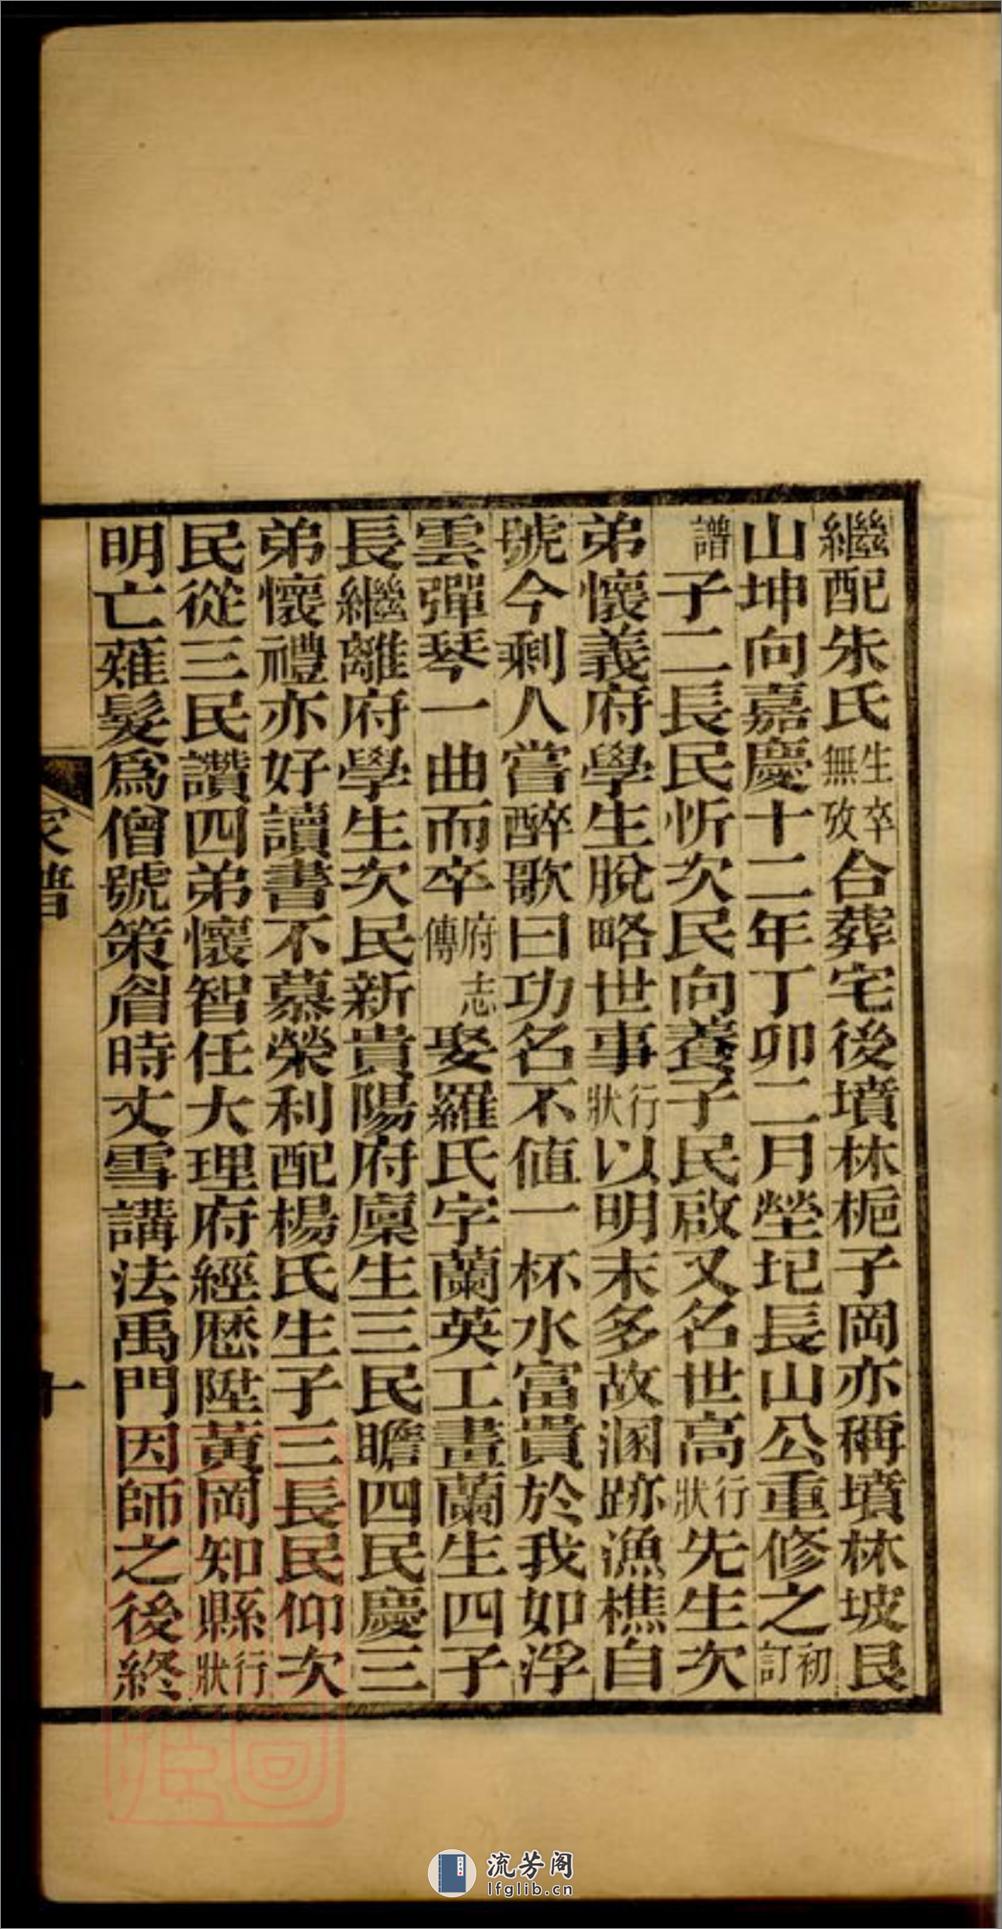 繼配朱氏生卒無攷合葬宅後墳林梔子岡亦稱墳林坡艮
山坤向嘉慶十二年丁卯二月塋圮長山公重修之初訂
譜子二長民忻次民向養子民啟又名世高行狀先生次
弟懷義府學生脫略世事行狀以明末多故溷跡漁樵自
號今剩人嘗醉歌曰功名不值一杯水富貴於我如浮
雲彈琴一曲而卒府志傳娶羅氏字蘭英工畫蘭生四子
長繼離府學生次民新貴陽府廩生三民瞻四民慶三
弟懷禮亦好讀書不慕榮利配楊氏生子三長民仰次
民從三民讚四弟懷智任大理府經歷陞黃岡知縣行狀
明亡薙髮為僧號策眉時丈雪講法禹門因師之後終
家譜
十
流芳阁
lfglib.cn